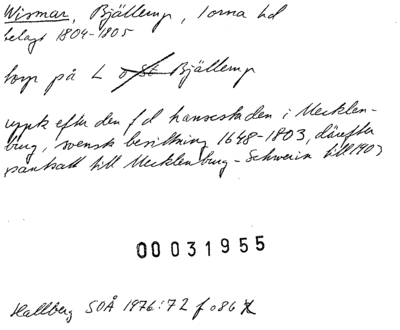 Wismar, Bjällerup, Torna hd
belagt 1804-1805
torp på L o St Bjällerup
uppk efter den f d hansestaden i Mecklen-
burg, svensk besittning 1648-1803, därefter
pantsatt till Mecklenburg-Schwerin till 1903
00031955
Hallberg SOÅ 1976:72 f o 86